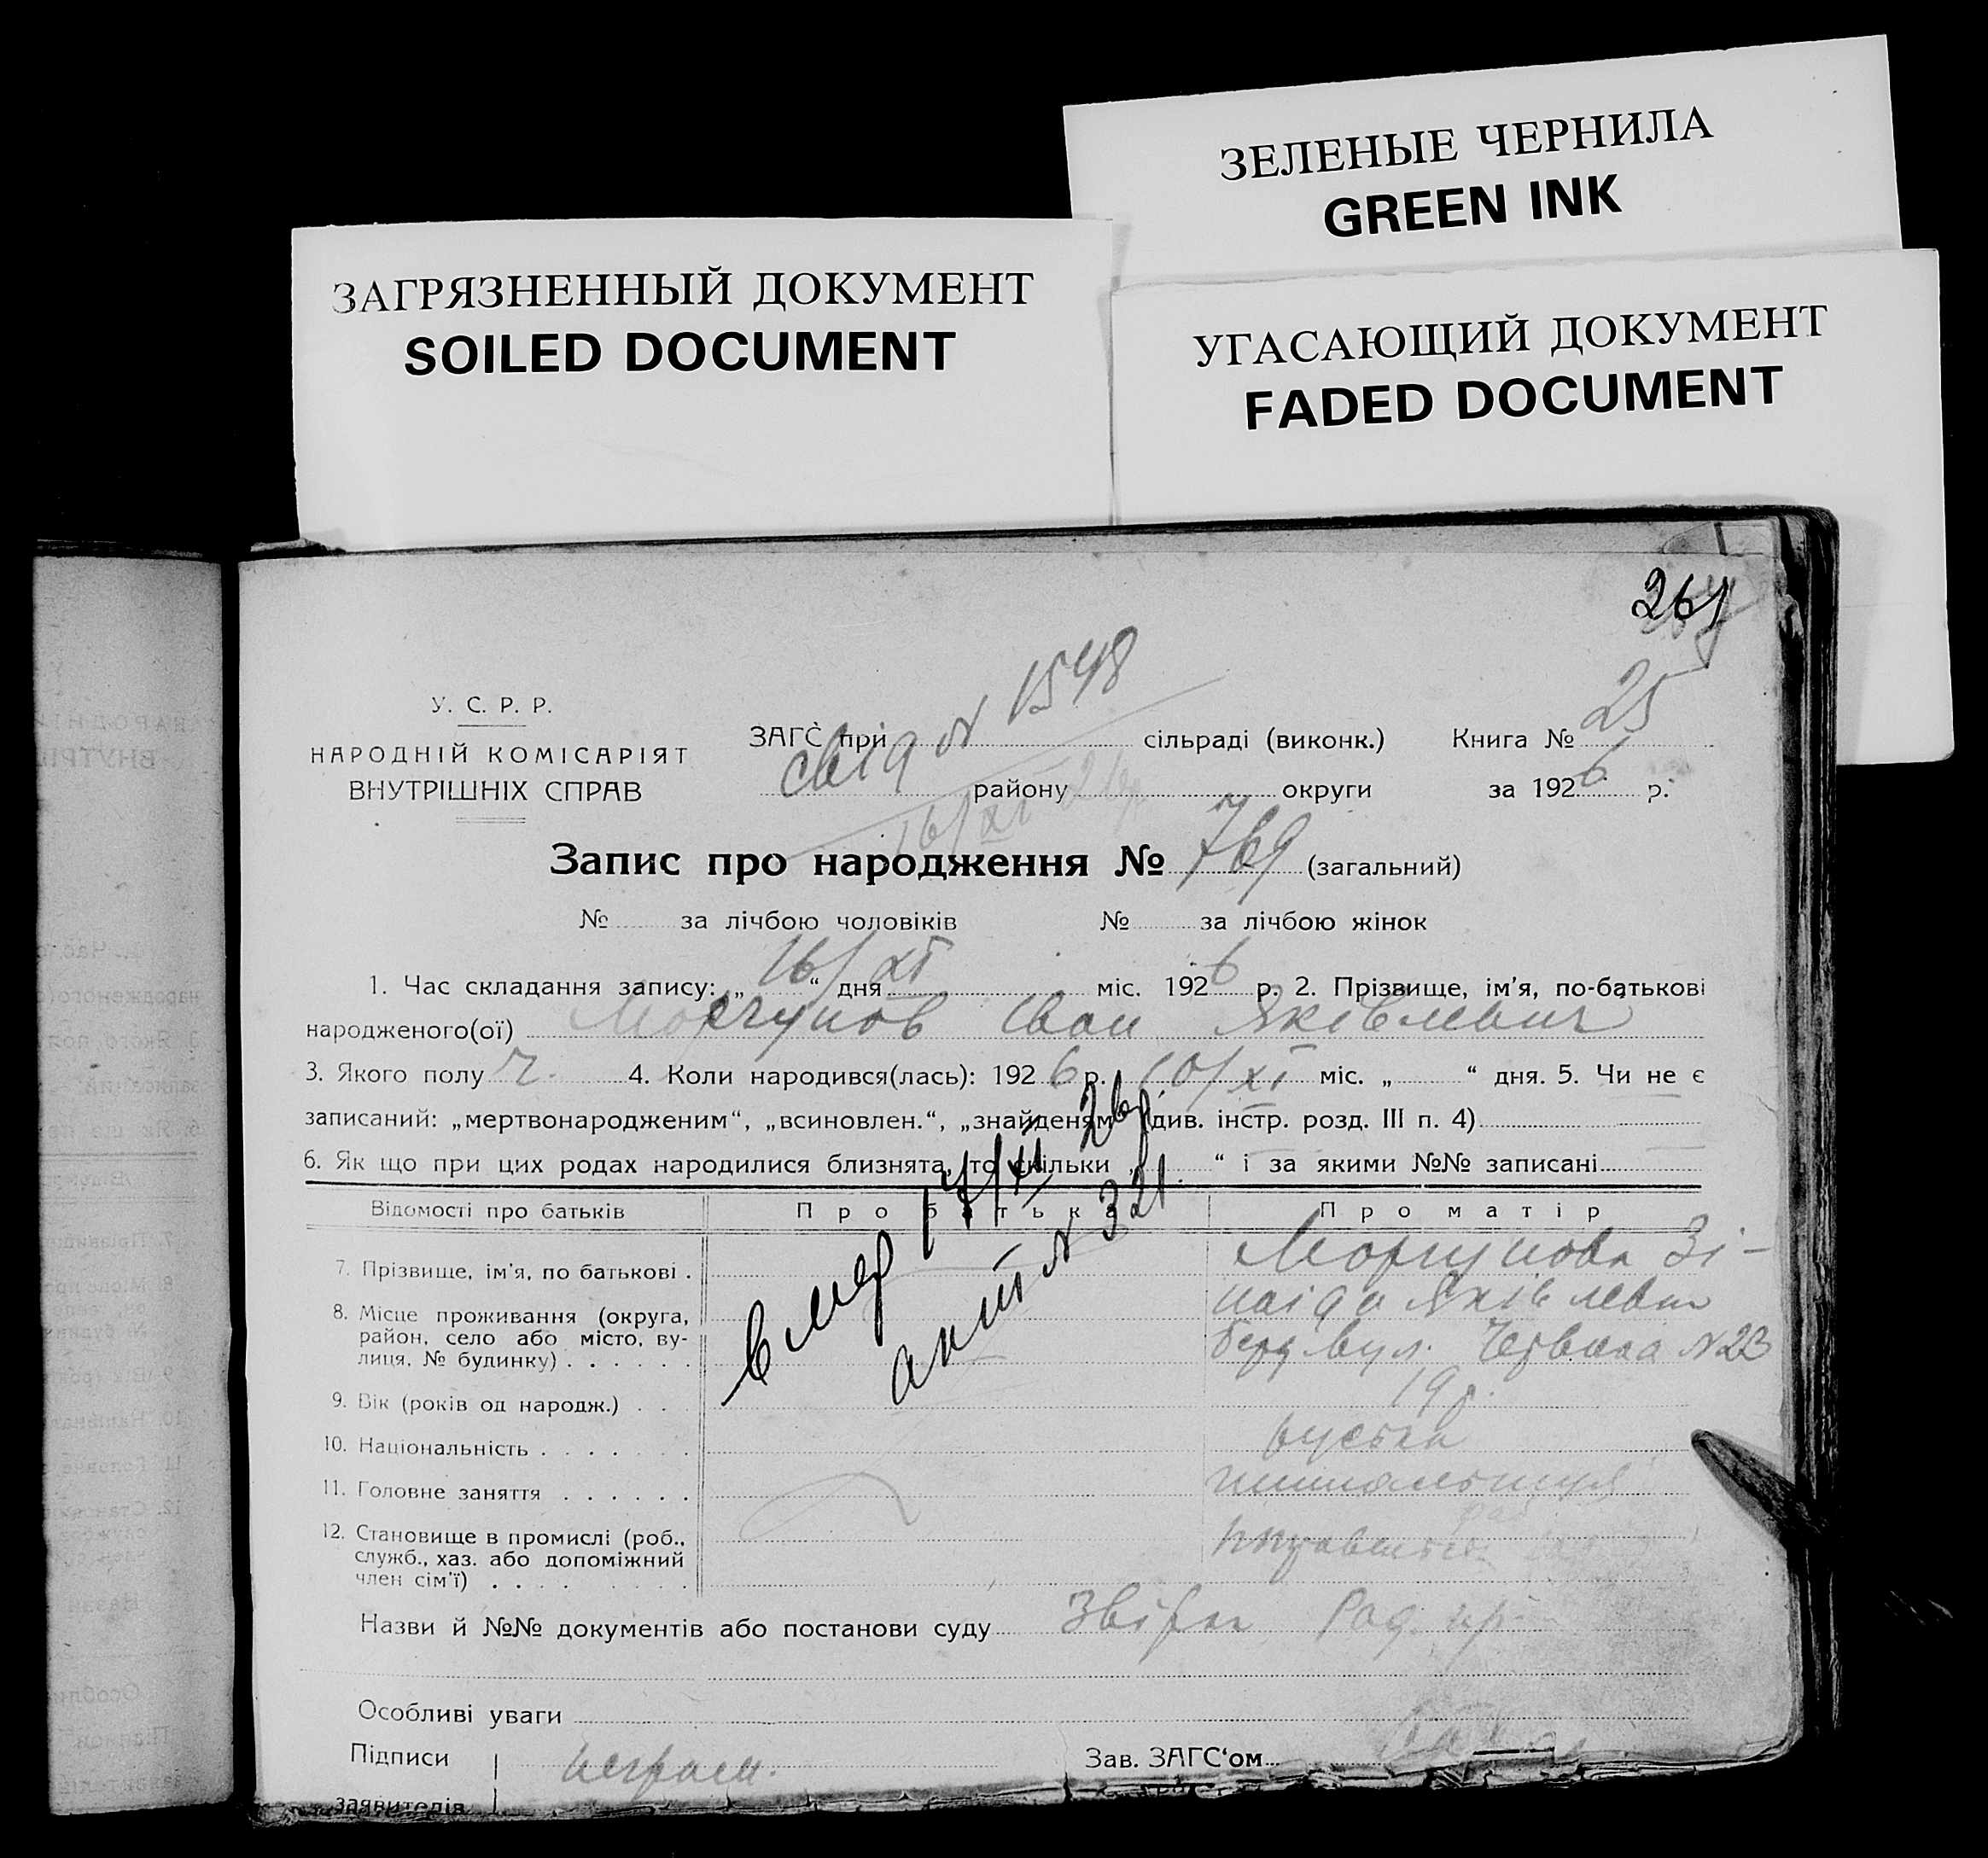 ЗЕЛЕНЫЕ ЧЕРНИЛА
GREEN INK
ЗАГРЯЗНЕННЫЙ ДОКУМЕНТ
SOILED DOCUMENT
УГАСАЮЩИЙ ДОКУМЕНТ
FADED DOCUMENT
261
У. С. Р. Р.
НАРОДНІЙ КОМІСАРІЯТ
ВНУТРІШНІХ СПРАВ
свід № 1548
16/XI 26р
ЗАГС при сільраді (виконк.) Книга № 25
району округи за 1926 р.
Запис про народження № 769 (загальний)
№ за лічбою чоловіків № за лічбою жінок
1. Час складання запису: „16/XI“ дня міс. 1926 р. 2. Прізвище, ім'я, по-батькові
народженого(ої) Моргунов Іван Яківлевич
3. Якого полу ч. 4. Коли народився(лась): 1926 р. 10/XI міс. „ “ дня. 5. Чи не є
записаний: „мертвонародженим“, „всиновлен.“, „знайденям“ (див. інстр. розд. III п. 4)
6. Як що при цих родах народилися близнята, то скільки „ “ і за якими №№ записані
Відомості про батьків Про батька Про матір
вмер 17/XII 26р
акт № 321
7. Прізвище, ім'я, по батькові . Моргунова Зі-
наіда Яківлевна
8. Місце проживання (округа,
район, село або місто, ву-
лиця, № будинку) . . . . . . вул. Червона № 23
9. Вік (років од народж.) . . . 19 р.
10. Національність . . . . . . руська
11. Головне заняття . . . . . .
12. Становище в промислі (роб.,
служб., хаз. або допоміжний
член сім'ї) . . . .
Назви й №№ документів або постанови суду
Особливі уваги
Підписи неграм. Зав. ЗАГС'ом
заявителів